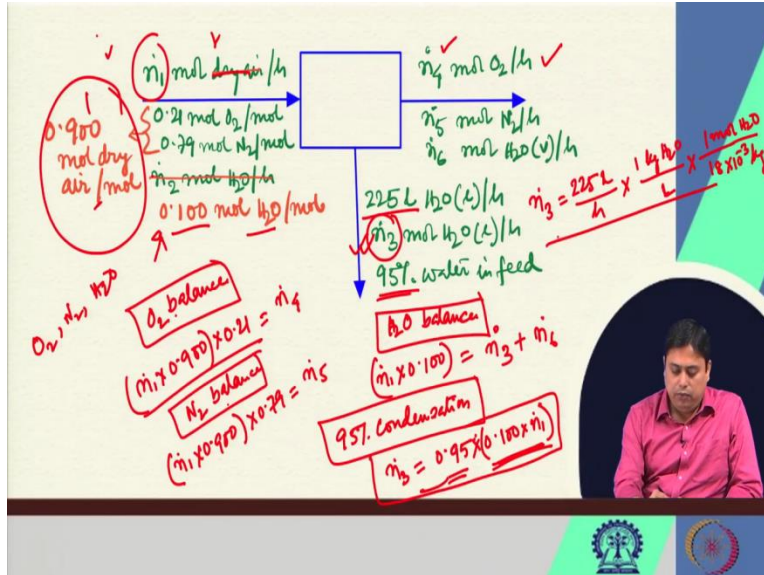 ṅ1 mol dry air/h
0.900
mol dry
air/mol
0.21 mol O2/mol
0.79 mol N2/mol
ṅ2 mol H2O/h
0.100 mol H2O/mol
O2, N2, H2O
ṅ4 mol O2/h
ṅ5 mol N2/h
ṅ6 mol H2O(v)/h
225 L H2O(l)/h
ṅ3 mol H2O(l)/h
95% water in feed
ṅ3 = 225L/h × 1 kg H2O/L × 1 mol H2O/18×10^-3 kg
O2 balance
(ṅ1×0.900)×0.21 = ṅ4
N2 balance
(ṅ1×0.900)×0.79 = ṅ5
H2O balance
(ṅ1×0.100) = ṅ3 + ṅ6
95% condensation
ṅ3 = 0.95×(0.100×ṅ1)